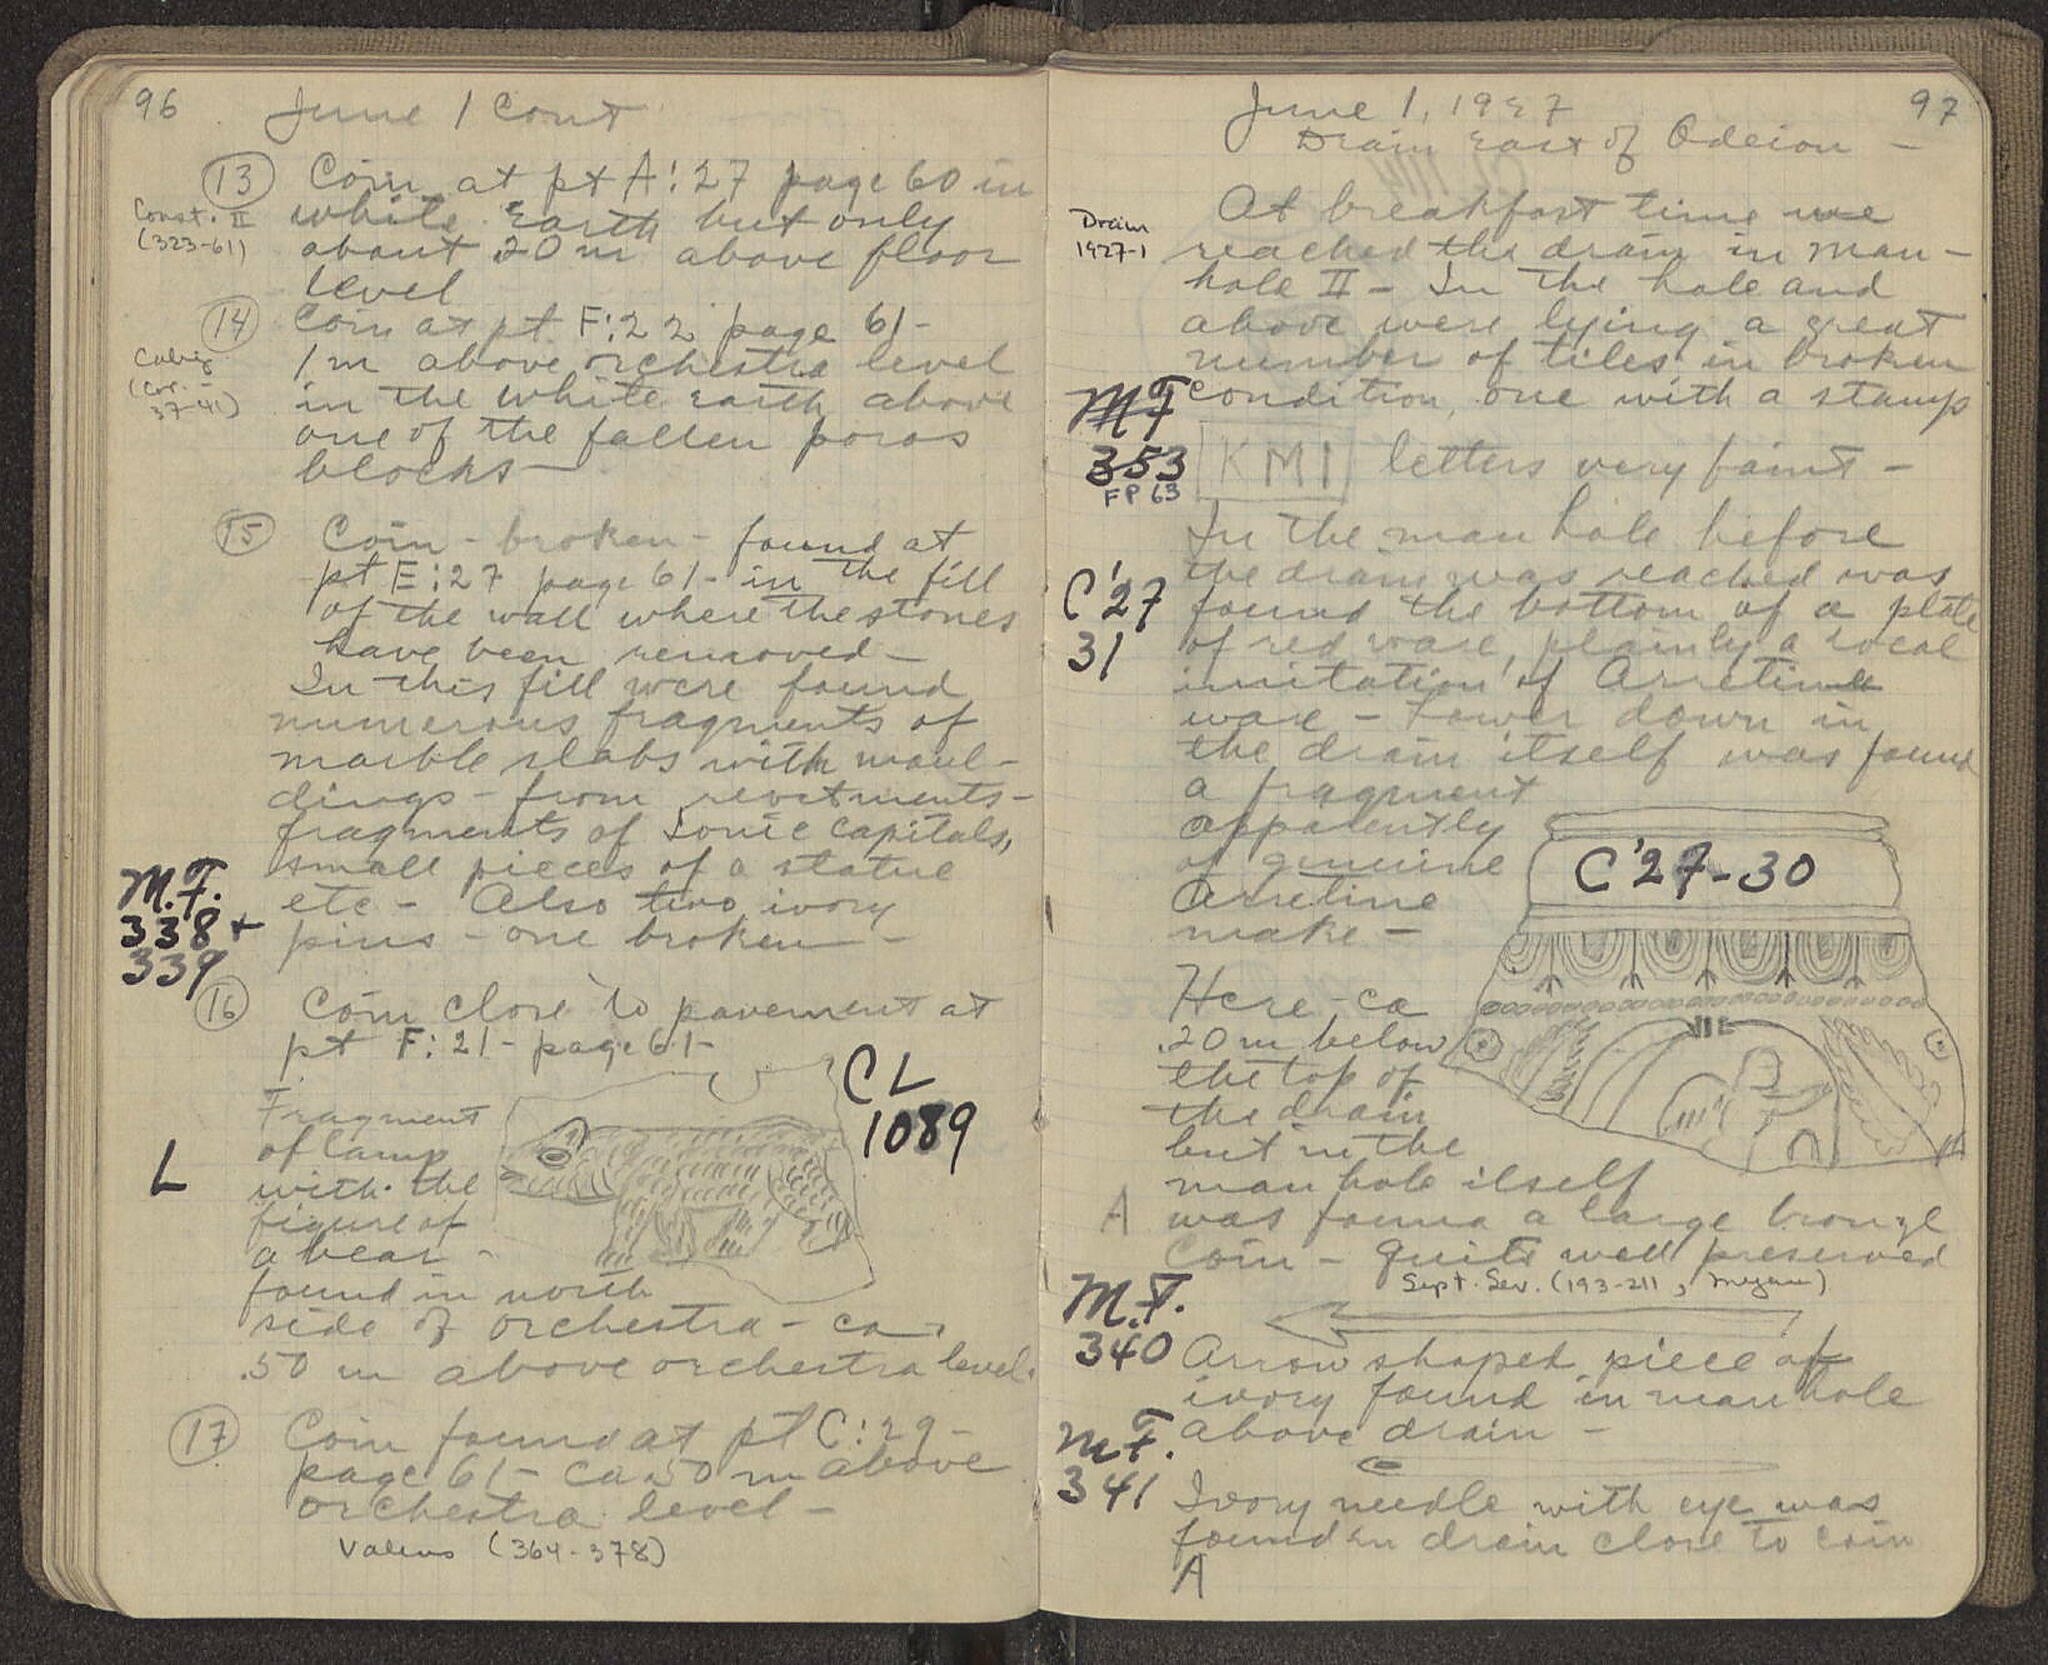 96
June 1 Cont
13
Coin at pt A:27 page 60 in
Const. II
(323-61)
white earth but only
about 20 m above floor
level
14
Coin at pt. F:22 page 61-
1 m above orchestra level
(Cor. -
37-41)
in the white earth above
one of the fallen poros
blocks —
15
Coin - broken - found at
pt E:27 page 61- in the fill
of the wall where the stones
have been removed -
In this fill were found
numerous fragments of
marble slabs with moul-
dings - from revetments -
fragments of Ionic capitals,
small pieces of a statue
M.F.
338 +
339
etc - Also two ivory
pins - one broken -
16
Coin close to pavement at
pt F:21- page 61-
CL
1089
L
Fragment
of lamp
with the
figure of
a bear -
found in north
side of orchestra - ca.
.50 m above orchestra level.
17
Coin found at pt C:29 -
page 61- ca .50 m above
orchestra level -
Valens (364-378)
97
June 1, 1927
Drain East of Odeion -
Drain
1927-1
At breakfast time we
reached the drain in man-
hole II - In the hole and
above were lying a great
number of tiles in broken
condition, one with a stamp
MF
353
FP 63
KMI letters very faint -
In the man hole before
the drain was reached was
C'27
31
found the bottom of a plate
of red ware, plainly a local
imitation of Arretine
ware - Lower down in
the drain itself was found
a fragment
apparently
of genuine
Arretine
make -
C'27-30
Here - ca
.20 m below
the top of
the drain
but in the
man hole itself
A was found a large bronze
coin - quite well preserved
Sept. Sev. (193-211,
M.F.
340
Arrow shaped piece of
ivory found in man hole
above drain -
M.F.
341
Ivory needle with eye was
found in drain close to coin
A